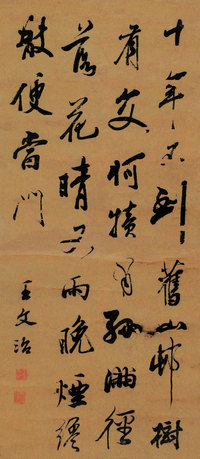 十年不到舊山邨樹
有交柯犢有孫滿徑
落花晴雨晚煙
便當門
王文治